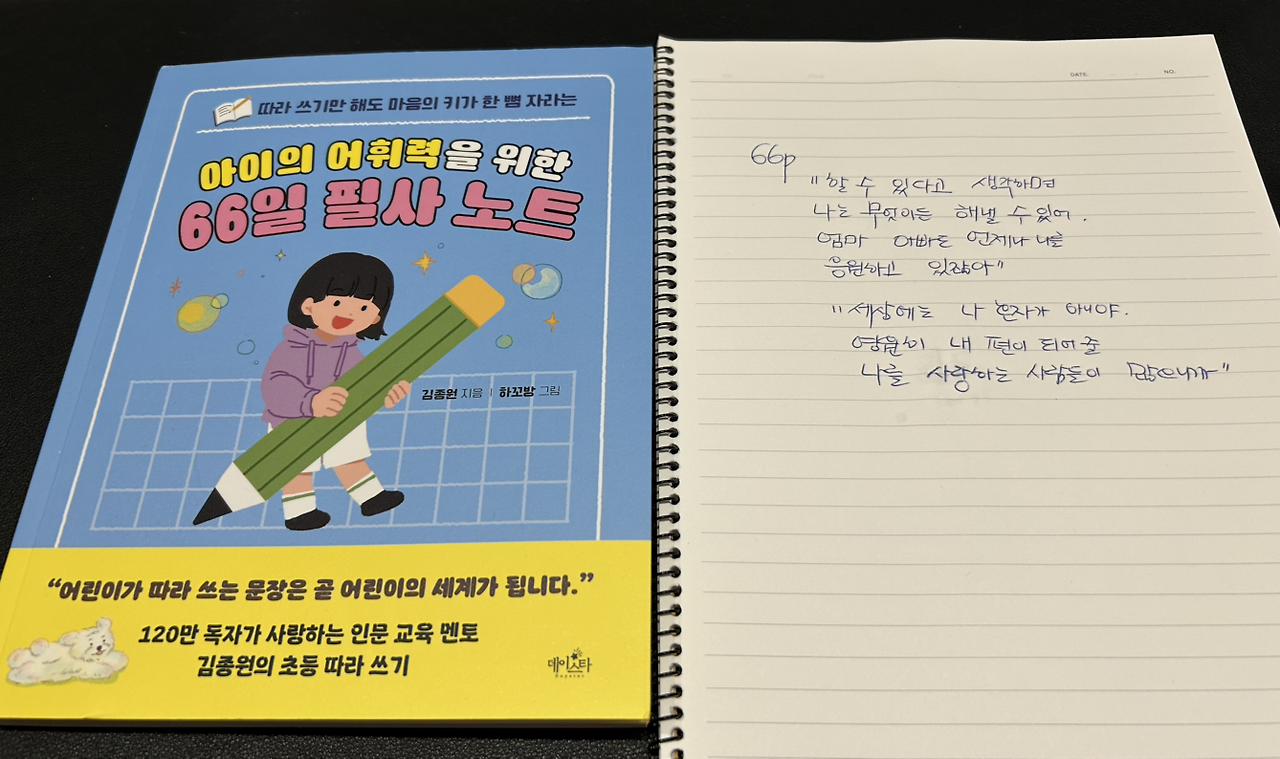 따라 쓰기만 해도 마음의 키가 한 뼘 자라는
아이의 어휘력을 위한
66일 필사 노트
김종원 지음 | 하꼬방 그림
“어린이가 따라 쓰는 문장은 곧 어린이의 세계가 됩니다.”
120만 독자가 사랑하는 인문 교육 멘토
김종원의 초등 따라 쓰기
데이스타
Daystar
DATE. NO.
66p
"할 수 있다고 생각하면
나는 무엇이든 해낼 수 있어.
엄마 아빠도 언제나 나를
응원하고 있잖아"
"세상에는 나 혼자가 아니야.
영원히 내 편이 되어 줄
나를 사랑하는 사람들이 많으니까"